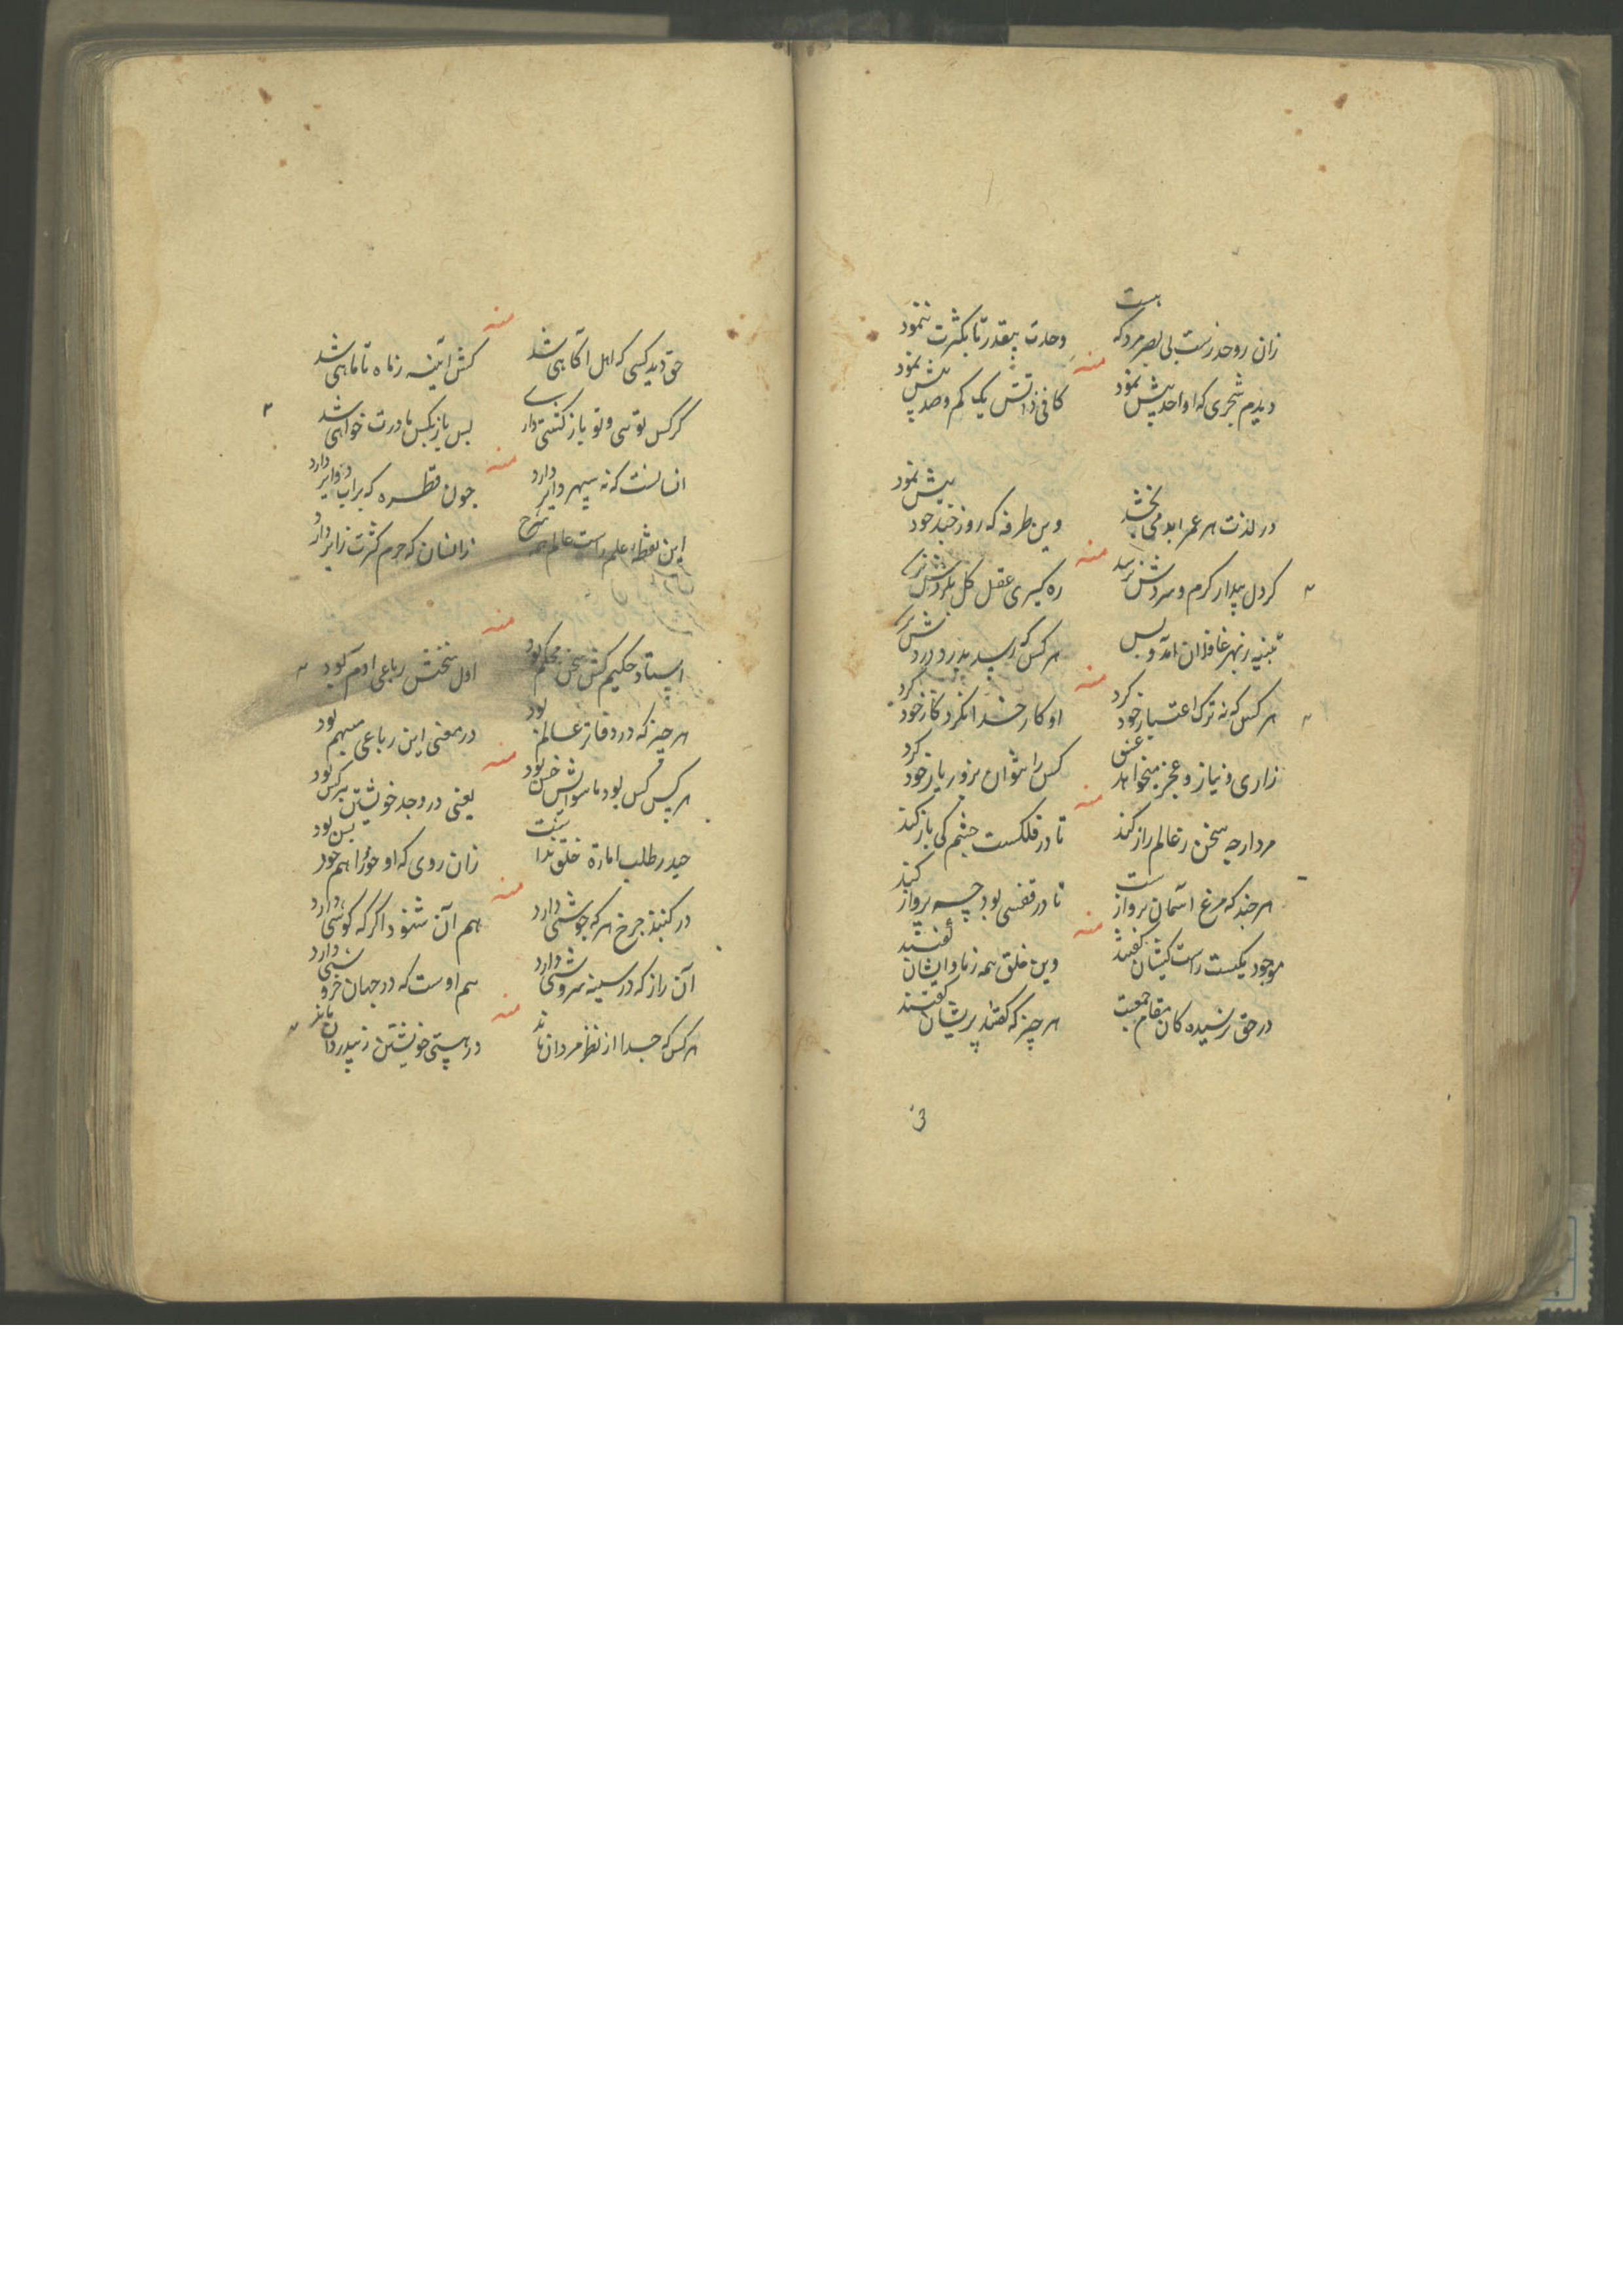 زان رو حذرست بی بصر مردکه هست
وحدت بقدر تا بکثرت ننمود
منه
دیدم شجری که او احد پیش نمود
کافی ذاتش یک کم وصد پیش نمود
در لذت هر عمر ابد می بخشد
وین طرفه که روز خود پیش نمود
منه
کر دل بیدار کرم و سردش نرسد
ره کیری عقل کل بکردش نرسد
تنبیه ز بهر غافلان آمد و بس
هر کس که رسید بدرد دردش نرسد
منه
هر کس که نه ترک اعتبار خود کرد
او کار خدا نکرد کار خود کرد
زاری و نیاز و عجز میخواهد عشق
کس را نتوان بزور یار خود کرد
منه
مردار چه سخن ز عالم راز کند
تا در فلکست چشم کی باز کند
هر چند که مرغ آسمان پروازست
تا در قفسی بود چه پرواز کند
منه
موجود یکیست راست کیشان کفتند
وین خلق همه زماد ایشان کفتند
در حق نرسیده کان مقام جمعیت
هر چیز که کفتند پریشان کفتند
منه
حق دید کسی که اهل آکاهی شد
کش آینه ز ماه تا ماهی شد
کر کس تو سی و تو باز کشتی داری
پس باز بکس مادرت خواهی شد
منه
انسانست که نه سپهر دایر دارد
چون قطره که بر آب دوایر دارد
این نقطه علم راست عالم همه شرح
زانسان که جرم کثرت زایر دارد
منه
استاد حکیم کش سخن محکم بود
اول سخنش رباعی آدم بود
هر چیز که در دفاتر عالم بود
در معنی این رباعی مبهم بود
منه
هر کس کس بود ماسوایش خس بود
یعنی در وجد خویشتن بیکس بود
حیدر طلب امارة خلق نداشت
زان روی که او خود را هم خود بس بود
منه
در کنبد چرخ هر که جوشی دارد
هم آن شنود اکر که کوشی دارد
آن راز که در سینه سروشی دارد
هم اوست که در جهان خروشی دارد
منه
هر کس که جدا از نظر مردان ماند
در هستی خویشتن ز بیدردان ماند